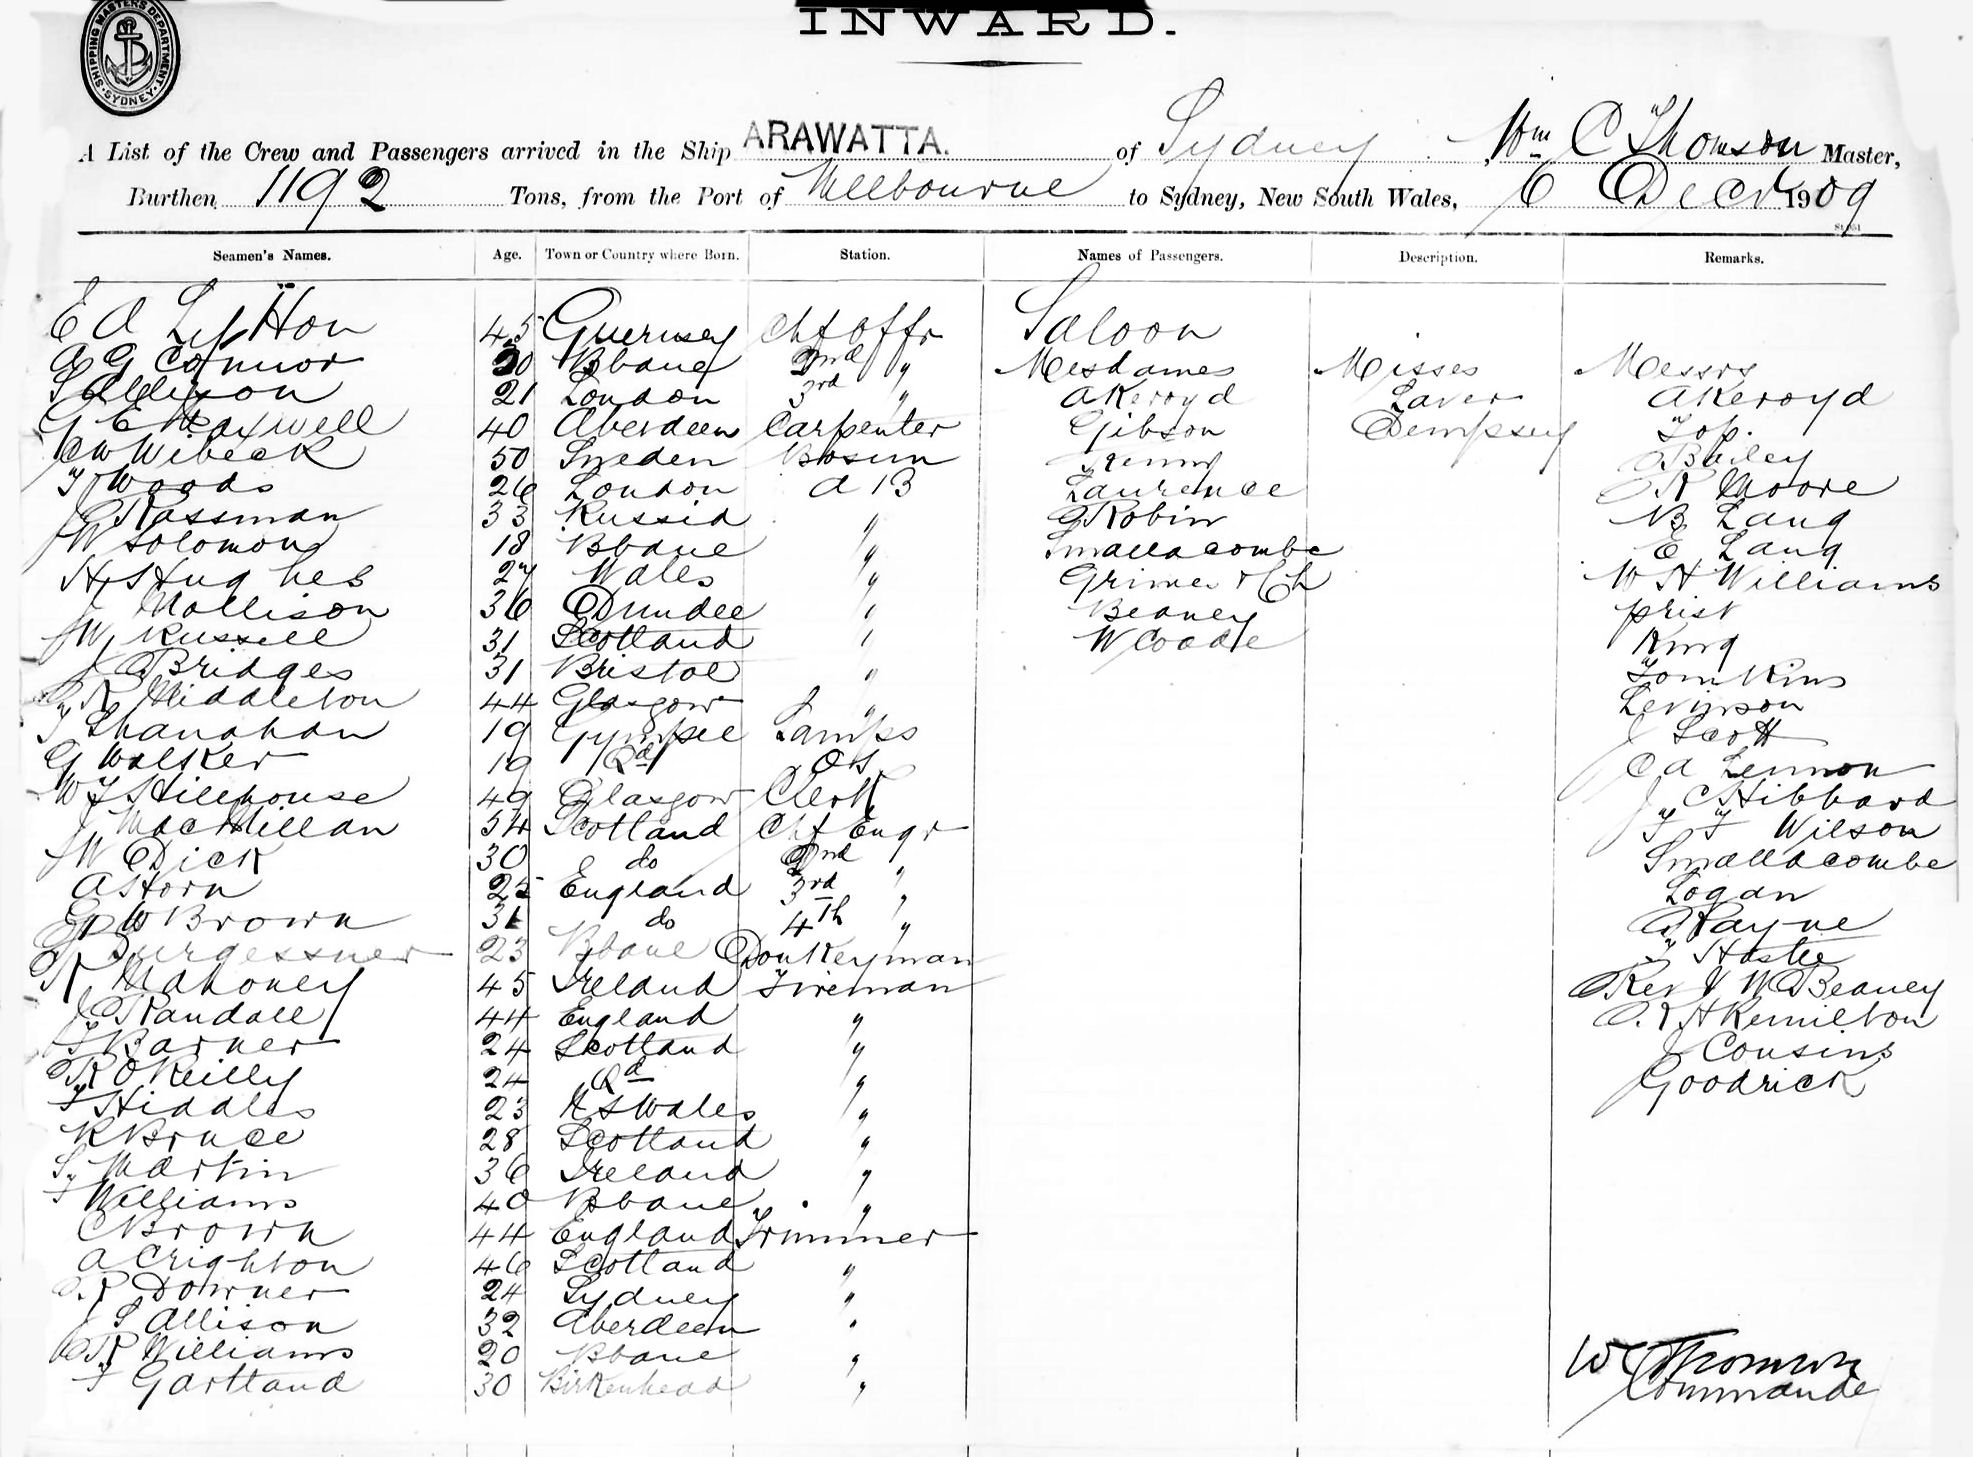 SHIPPING MASTERS DEPARTMENT. SYDNEY.
INWARD.
A List of the Crew and Passengers arrived in the Ship ARAWATTA. of Sydney Wm C Thomson Master,
Burthen 1192 Tons, from the Port of Melbourne to Sydney, New South Wales, 6 Decr 1909
Seamen's Names. Age. Town or Country where Born. Station. Names of Passengers. Description. Remarks.
45 Guernsey Chf Offr Saloon
A G Connor 30 Bbane 2nd " Mesdames Misses Messrs
S Allison 21 London 3rd " Akeroyd Laver Akeroyd
G E Maxwell 40 Aberdeen Carpenter Gibson Dempsey
C W Wibeck 50 Sweden Bosun Bailey
F Woods 26 London A B Laurence R Moore
J Rassman 33 Russia " Robin B Lang
W Solomon 18 Bbane " Smallacombe E Lang
H S Hughes 27 Wales " Grimes & Ch W H Williams
Mollison 36 Dundee " Beaney Prist
J W Russell 31 Scotland " W Coade King
J Bridges 31 Bristol " Tomkins
R Middleton 44 Glasgow " Levinson
T Shanahan 19 Gympie Lamps J Scott
G Walker 19 Qd OS C A Lennon
W F Hillhouse 49 Glasgow Clerk J C Hibbard
J MacMillan 54 Scotland Chf Engr T F Wilson
J W Dick 30 do 2nd " Smallacombe
A Horn 25 England 3rd " Logan
G W Brown 31 do 4th " Payne
23 Bbane Donkeyman T Hastie
R Mahoney 45 Ireland Fireman Rev J W Beaney
J Randall 44 England " Kemilton
T Barner 24 Scotland " J Cousins
R O'Reilly 24 Qd " Goodrick
T Hiddles 23 N S Wales "
R Bruce 28 Scotland "
Martin 36 Ireland "
T Williams 40 Bbane "
C Brown 44 England Trimmer
A Crighton 46 Scotland "
P Downer 24 Sydney "
J S Allison 32 Aberdeen "
R Williams 20 Bbane "
T Gartland 30 Birkenhead "
W C Thomson
Commander